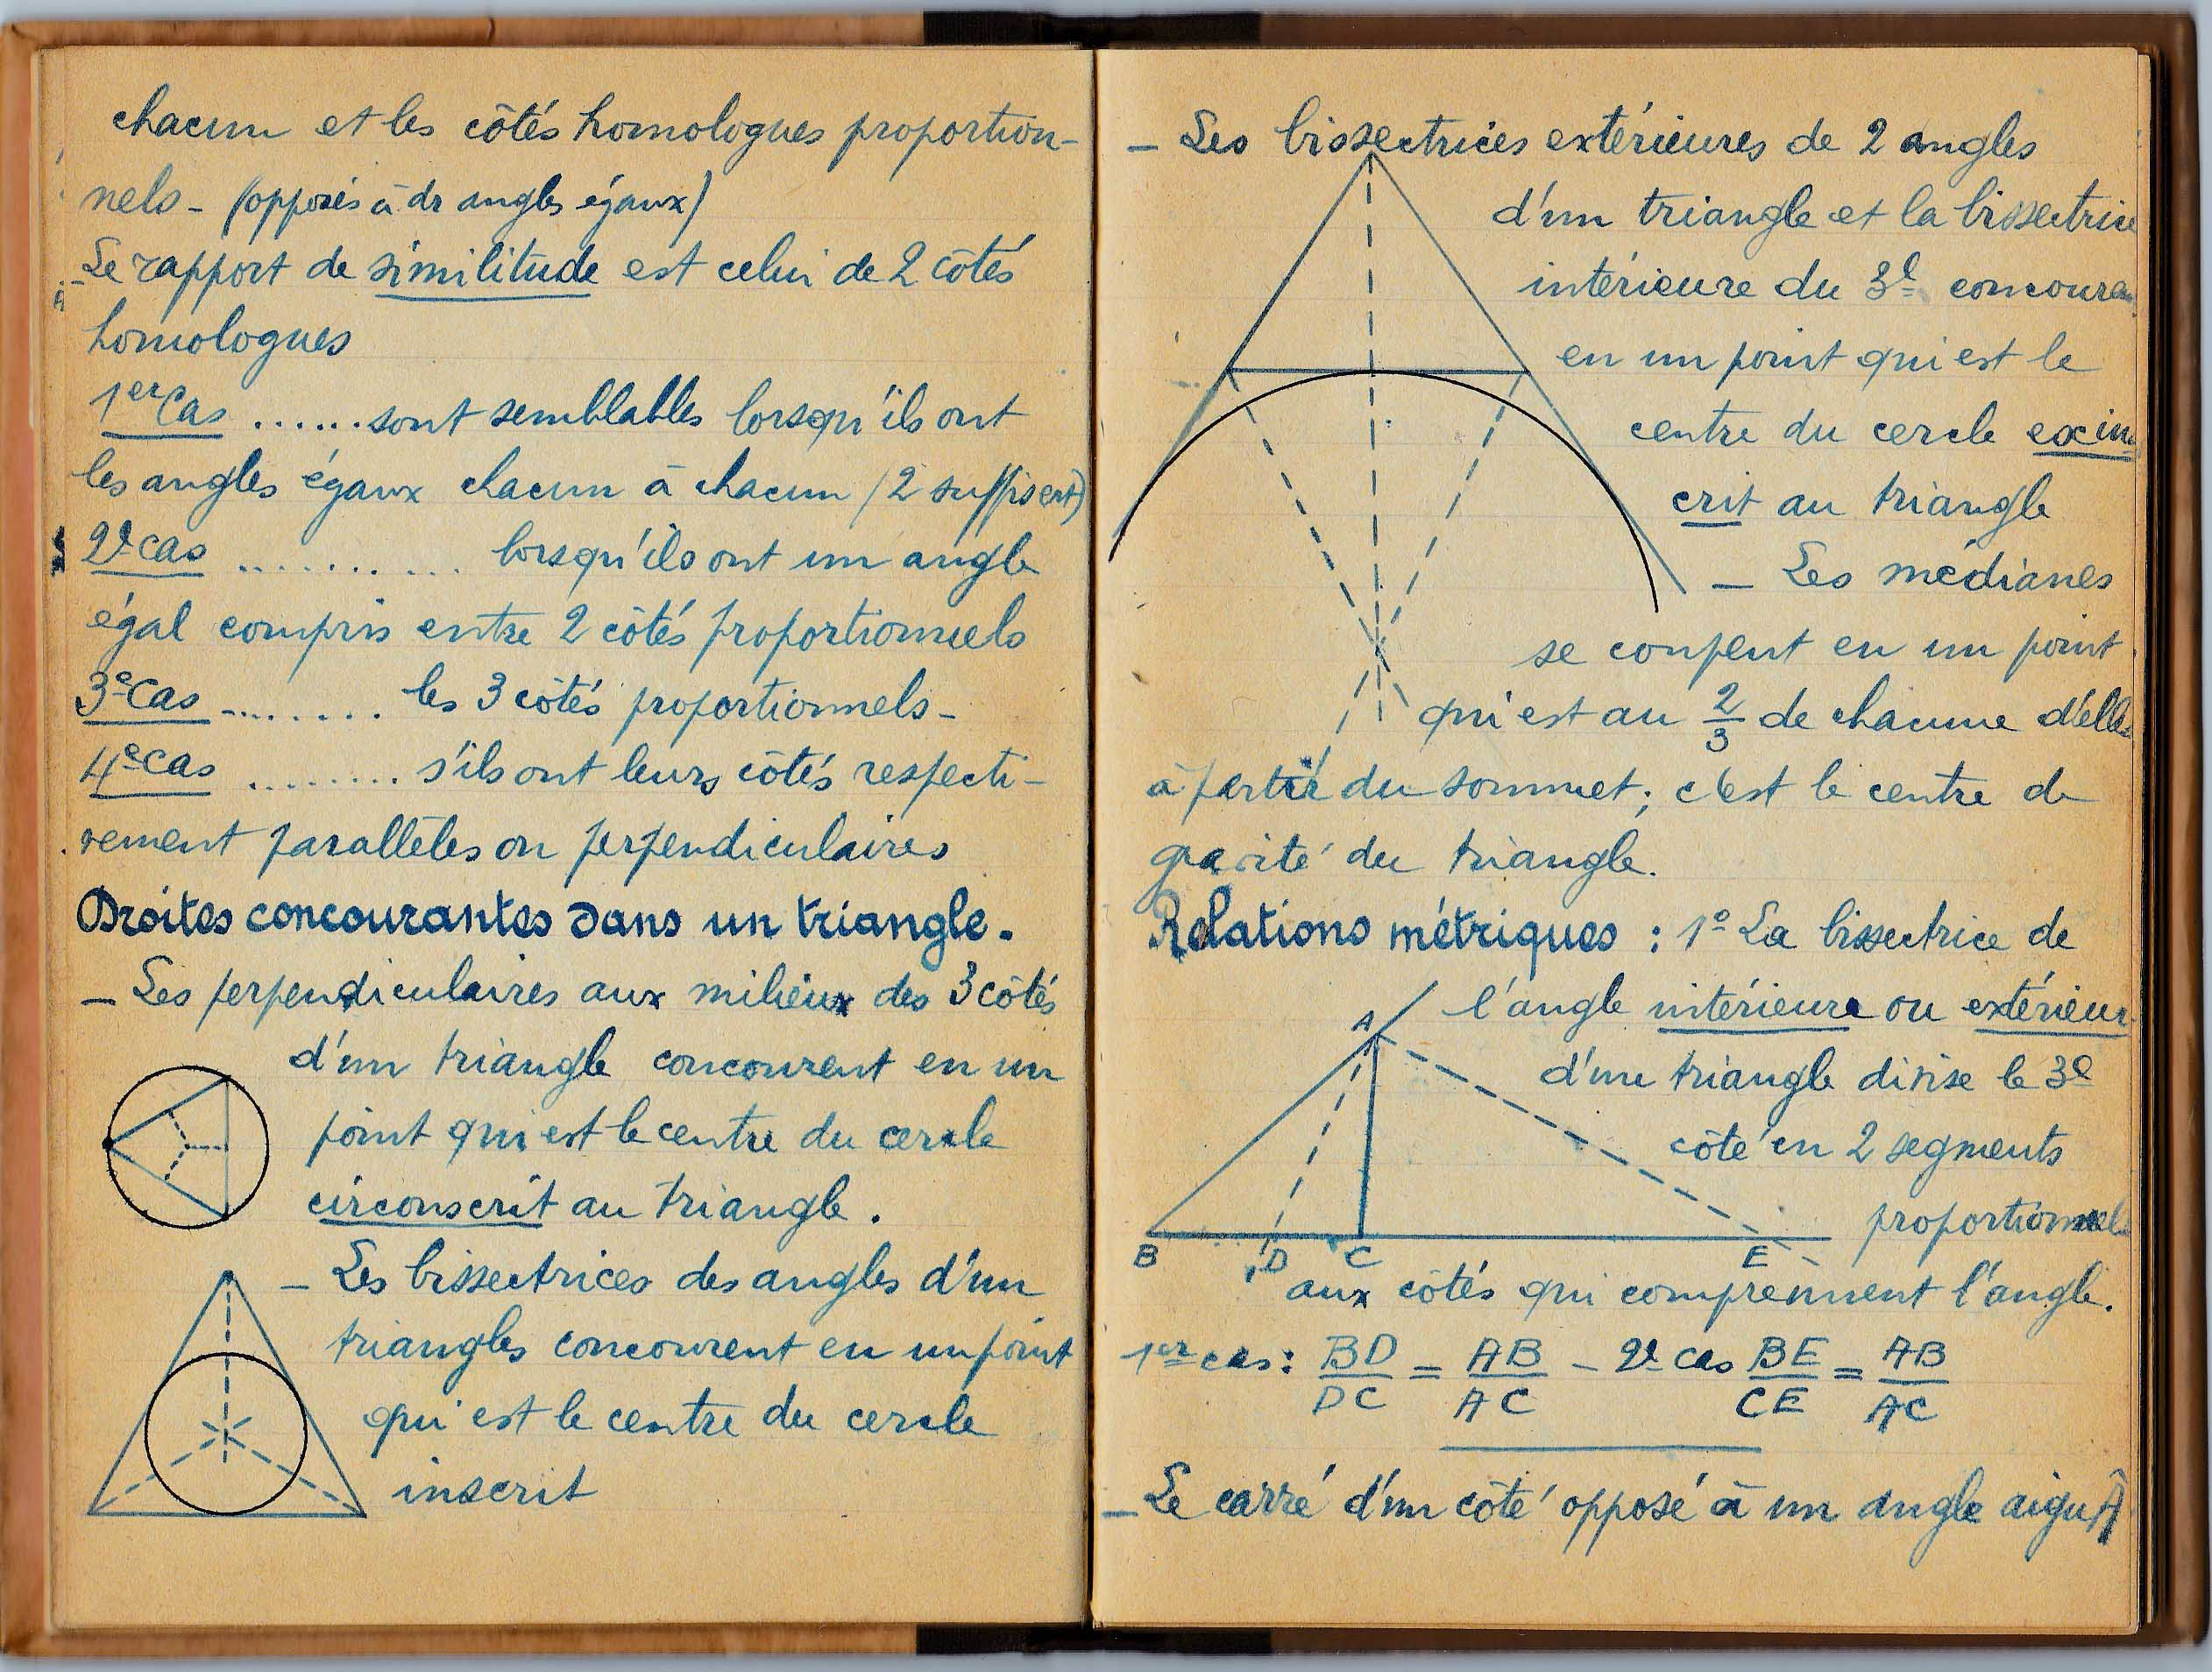 chacun et les côtés homologues proportion-
nels - (opposés à dr angles égaux)
Le rapport de similitude est celui de 2 côtés
homologues
1er Cas ....... sont semblables lorsqu'ils ont
les angles égaux chacun à chacun (2 suffisent)
2e cas ........... lorsqu'ils ont un angle
égal compris entre 2 côtés proportionnels
3e Cas ......... les 3 côtés proportionnels -
4e cas ......... s'ils ont leurs côtés respecti-
vement parallèles ou perpendiculaires
Droites concourantes dans un triangle.
- Les perpendiculaires aux milieux des 3 côtés
d'un triangle concourent en un
point qui est le centre du cercle
circonscrit au triangle.
- Les bissectrices des angles d'un
triangles concourent en un point
qui est le centre du cercle
inscrit
- Les bissectrices extérieures de 2 angles
d'un triangle et la bissectrice
intérieure du 3e concouren
en un point qui est le
centre du cercle exins
crit au triangle
- Les médianes
se coupent en un point
qui est au 2/3 de chacune d'elles
à partir du sommet ; c'est le centre de
gravité du triangle.
Relations métriques : 1° La bissectrice de
l'angle intérieure ou extérieur
d'une triangle divise le 3e
côté en 2 segments
proportionnels
A
B D C E
aux côtés qui comprennent l'angle.
1er cas : BD/DC = AB/AC - 2e cas BE/CE = AB/AC
- Le carré d'un côté opposé à un angle aigu Â